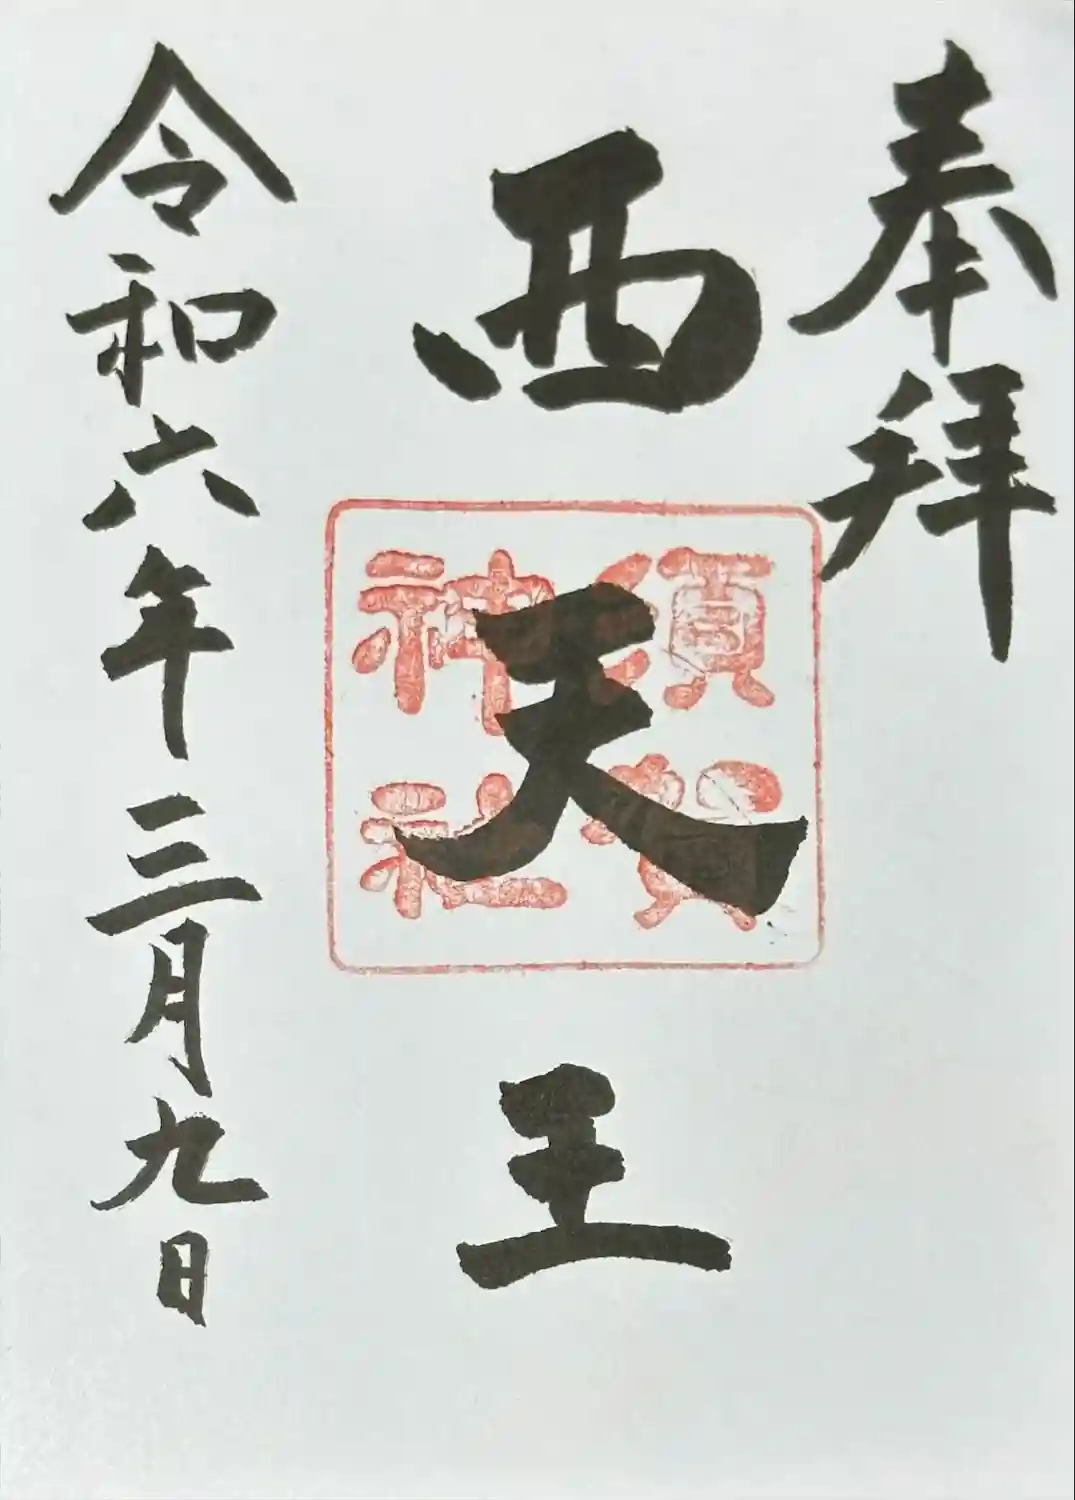 奉拝
西天王
須賀
神社
令和六年三月九日